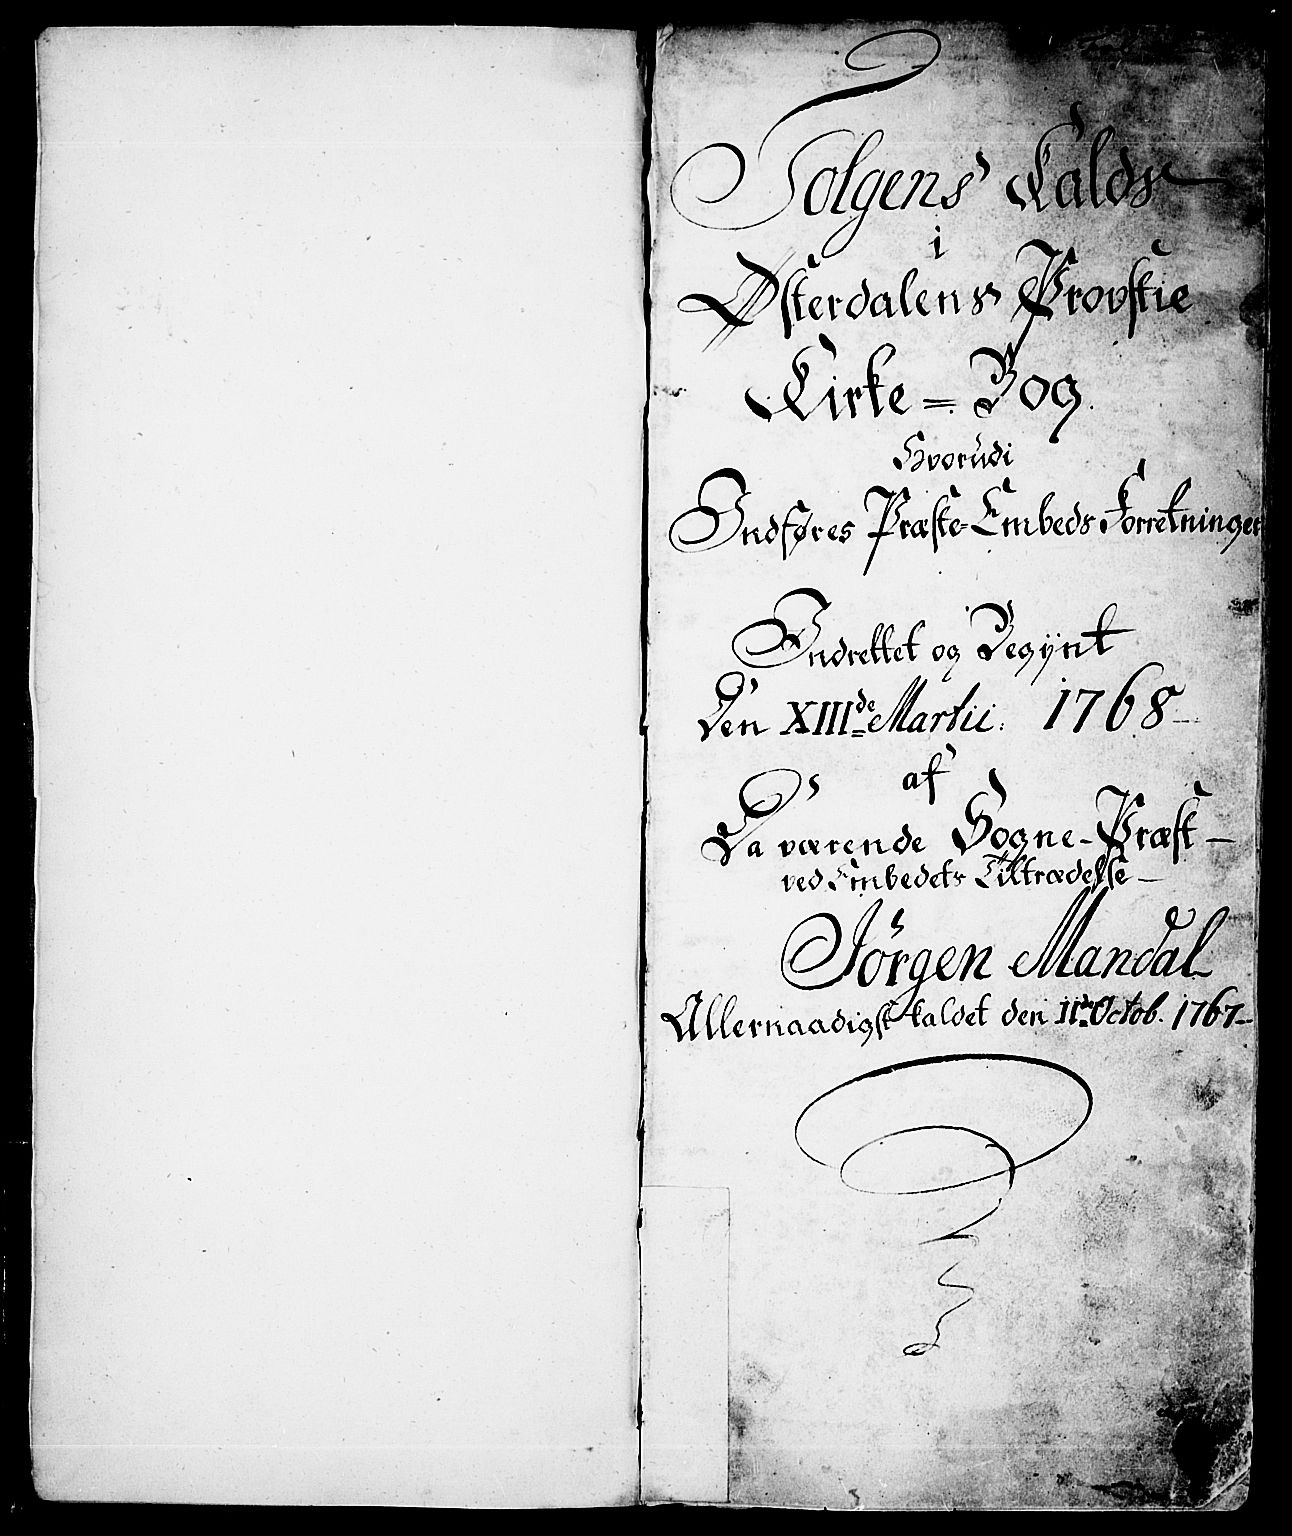 Tolgens Kalds
i
Østerdalens Provstie
Kirke = Bog.
Hvorudi
Indføres Præste-Embeds Forretninger
Indrettet og Begÿnt
Den XIII de Martii. 1768
af
Da værende Sogne-Præst
ved Embedets Tiltrædelse
Jørgen Mandal
Allernaadigst kaldet den 11 de Octob. 1767